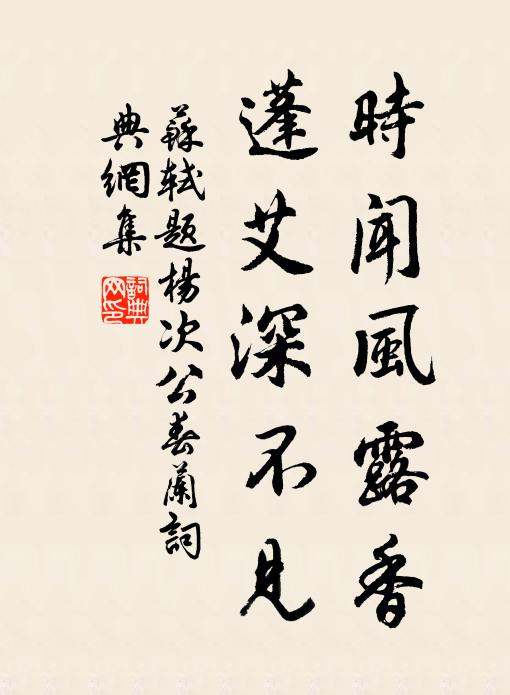 時聞風露香
蓬艾深不見
蘇軾題楊次公春蘭詞
典網集
詞典網印